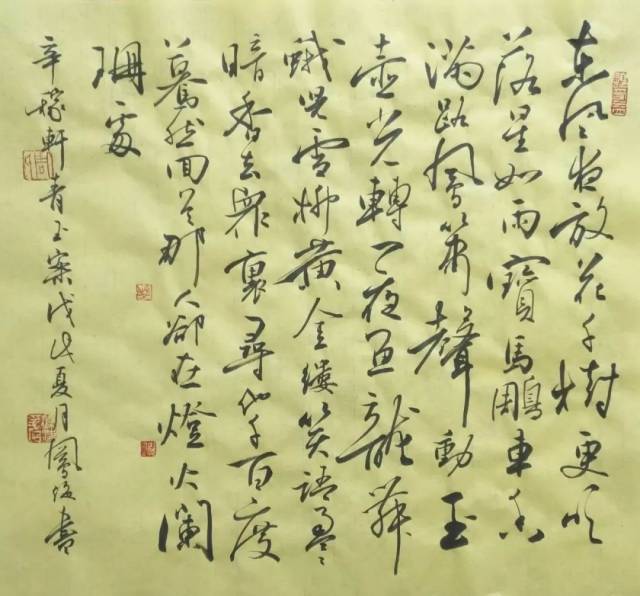 东风夜放花千樹更吹
落星如雨寶馬鵰車香
满路鳳箫聲動玉
壺光轉一夜魚龍舞
蛾児雪柳黄金縷笑語盈々
暗香去衆裏尋他千百度
驀然回首那人卻在燈火闌
珊處
辛稼軒青玉案戊戌夏月鳳書